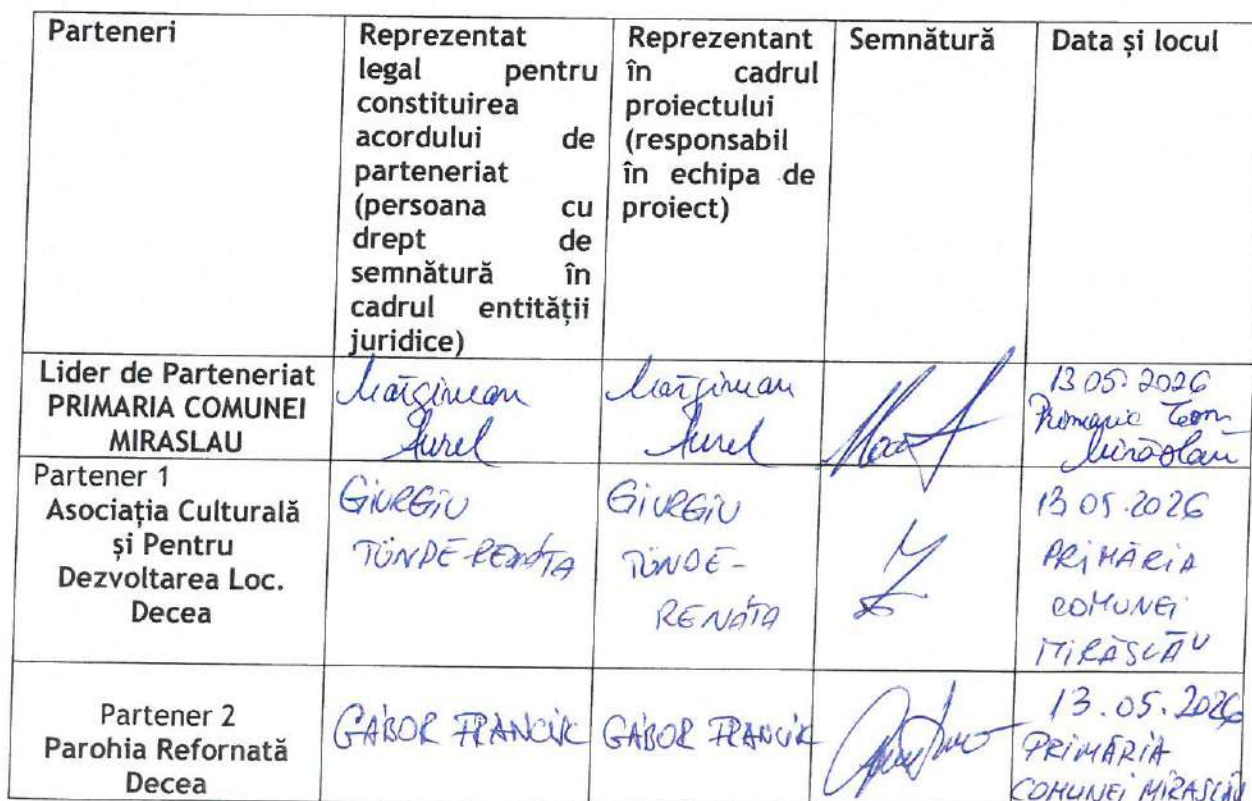 Parteneri
Reprezentat
legal pentru
constituirea
acordului de
parteneriat
(persoana cu
drept de
semnătură în
cadrul entității
juridice)
Reprezentant
în cadrul
proiectului
(responsabil
în echipa de
proiect)
Semnătură
Data și locul
Lider de Parteneriat
PRIMARIA COMUNEI
MIRASLAU
Mărginean
Aurel
Mărginean
Aurel
13 05. 2026
Primaria Com
Mirăslău
Partener 1
Asociația Culturală
și Pentru
Dezvoltarea Loc.
Decea
GIURGIU
TÜNDE-RENÁTA
GIURGIU
TÜNDE-
RENÁTA
13 05.2026
PRIMĂRIA
COMUNEI
MIRĂSLĂU
Partener 2
Parohia Refornată
Decea
GÁBOR FRANCISC
GÁBOR FRANCISC
13.05.2026
PRIMĂRIA
COMUNEI MIRASLĂU